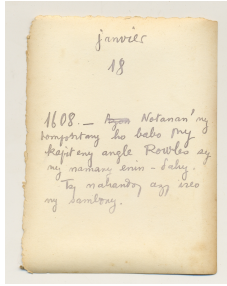 janvier
18
1608. — Notanan' ny
ho babo ny
kapiteny angle Rowles sy
ny namany enin-dahy.
Ty nahandoy azy ireo
ny sambony.